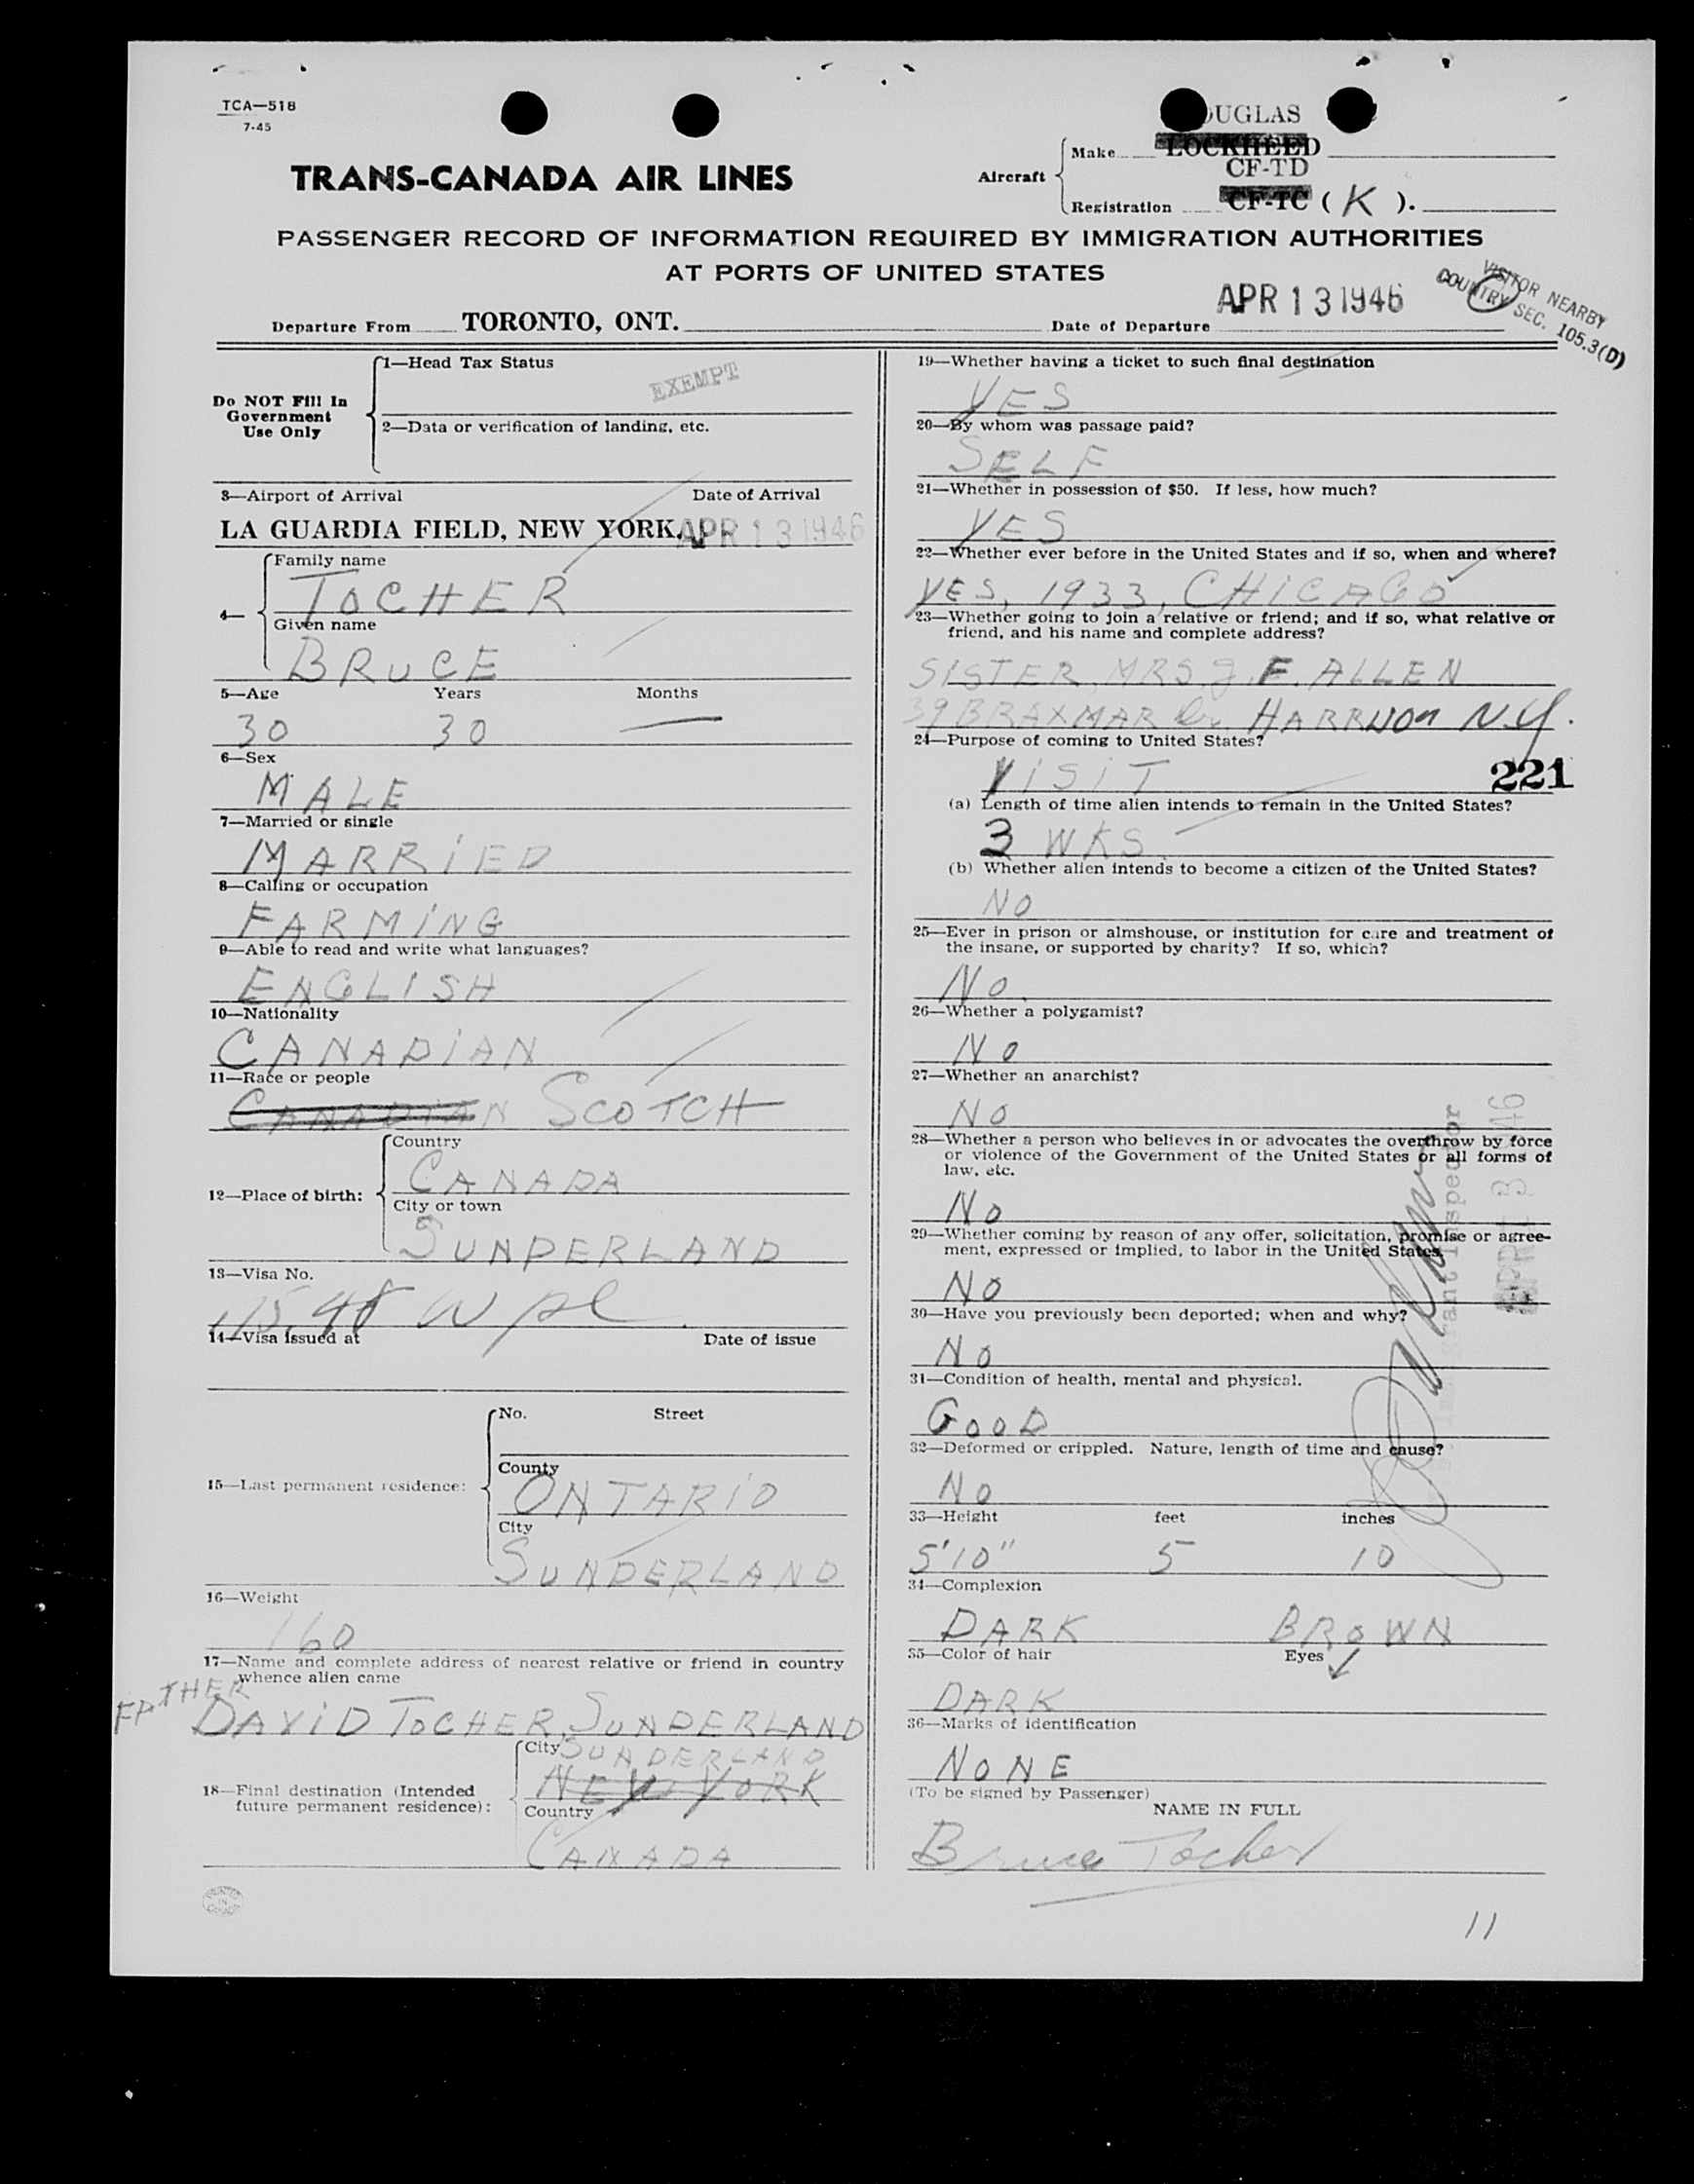 TCA—518
7-45
DOUGLAS
Aircraft
Make LOCKHEED
CF-TD
Registration CF-TC ( K ).
TRANS-CANADA AIR LINES
PASSENGER RECORD OF INFORMATION REQUIRED BY IMMIGRATION AUTHORITIES
AT PORTS OF UNITED STATES
VISITOR NEARBY
COUNTRY SEC. 105.3(D)
Departure From TORONTO, ONT. Date of Departure APR 13 1946
Do NOT Fill In
Government
Use Only
1—Head Tax Status
EXEMPT
2—Data or verification of landing, etc.
3—Airport of Arrival Date of Arrival
LA GUARDIA FIELD, NEW YORK, APR 13 1946
4—
Family name
TOCHER
Given name
BRUCE
5—Age Years Months
30 30 —
6—Sex
MALE
7—Married or single
MARRIED
8—Calling or occupation
FARMING
9—Able to read and write what languages?
ENGLISH
10—Nationality
CANADIAN
11—Race or people
CANADIAN SCOTCH
12—Place of birth:
Country
CANADA
City or town
SUNDERLAND
13—Visa No.
14—Visa issued at Date of issue
15—Last permanent residence:
No. Street
County
ONTARIO
City
SUNDERLAND
16—Weight
160
17—Name and complete address of nearest relative or friend in country
whence alien came
FATHER
DAVID TOCHER, SUNDERLAND
18—Final destination (Intended
future permanent residence):
City SUNDERLAND
NEW YORK
Country
CANADA
19—Whether having a ticket to such final destination
YES
20—By whom was passage paid?
SELF
21—Whether in possession of $50. If less, how much?
YES
22—Whether ever before in the United States and if so, when and where?
YES, 1933, CHICAGO
23—Whether going to join a relative or friend; and if so, what relative or
friend, and his name and complete address?
SISTER, MRS. J. F. ALLEN
39 BRAXMAR Dr. HARRISON N.Y.
24—Purpose of coming to United States?
VISIT
221
(a) Length of time alien intends to remain in the United States?
3 WKS.
(b) Whether alien intends to become a citizen of the United States?
NO
25—Ever in prison or almshouse, or institution for care and treatment of
the insane, or supported by charity? If so, which?
NO.
26—Whether a polygamist?
NO
27—Whether an anarchist?
NO
28—Whether a person who believes in or advocates the overthrow by force
or violence of the Government of the United States or all forms of
law, etc.
NO
29—Whether coming by reason of any offer, solicitation, promise or agree-
ment, expressed or implied, to labor in the United States.
NO
30—Have you previously been deported; when and why?
NO
31—Condition of health, mental and physical.
GOOD
32—Deformed or crippled. Nature, length of time and cause?
NO
33—Height feet inches
5'10" 5 10
34—Complexion
DARK BROWN
35—Color of hair Eyes
DARK
36—Marks of identification
NONE
(To be signed by Passenger)
NAME IN FULL
Bruce Tocher
11